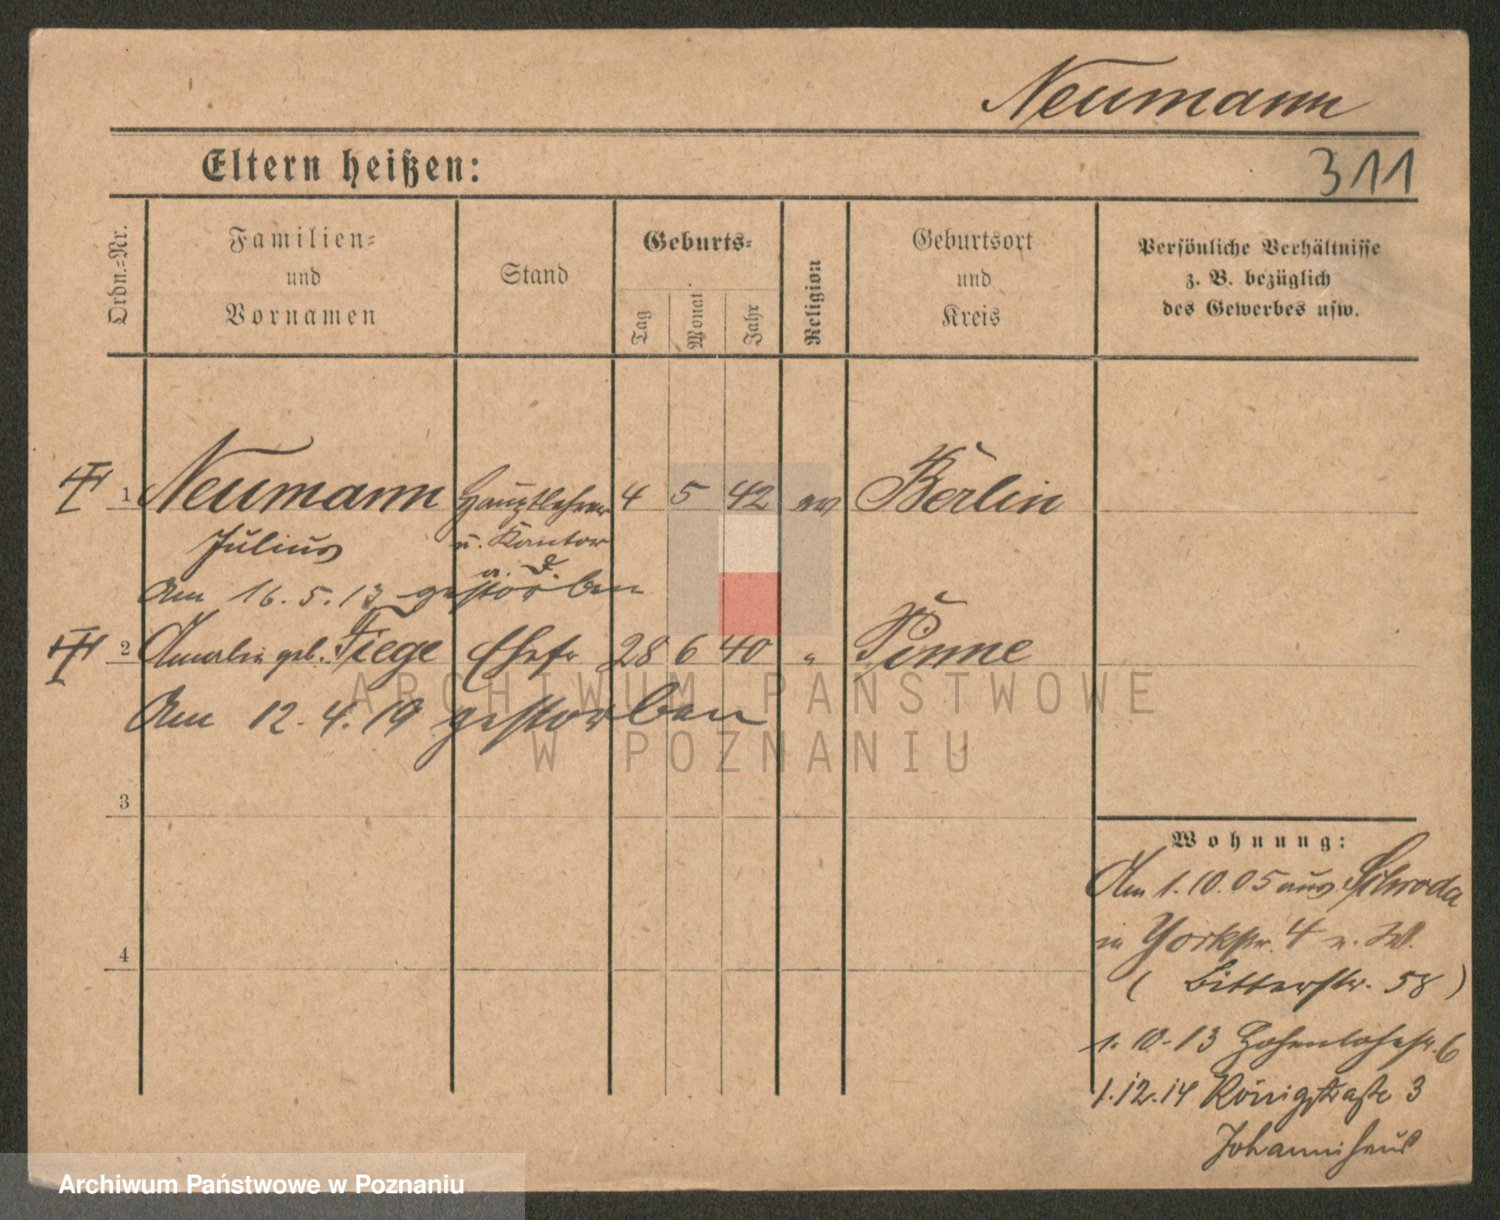 Neumann
Eltern heißen:
311
Ordn.-Nr.
Familien-
und
Vornamen
Stand
Geburts-
Tag
Monat
Jahr
Religion
Geburtsort
und
Kreis
Persönliche Verhältnisse
z. B. bezüglich
des Gewerbes usw.
1 Neumann Hauptlehrer 4 5 42 ev Berlin
Julius u. Kantor
a. D.
Am 16. 5. 13 gestorben
2 Amalie geb. Tiege Ehefr 28 6 40 " Pinne
Am 12. 4. 19 gestorben
ARCHIWUM PAŃSTWOWE
W POZNANIU
3
4
Wohnung:
Am 1. 10. 05 aus Schroda
in Yorkstr. 4 n. W.
( Bitterstr. 58 )
1. 10. 13 Hohenlohestr. 6
1. 12. 14 Königstraße 3
Johannishaus
Archiwum Państwowe w Poznaniu